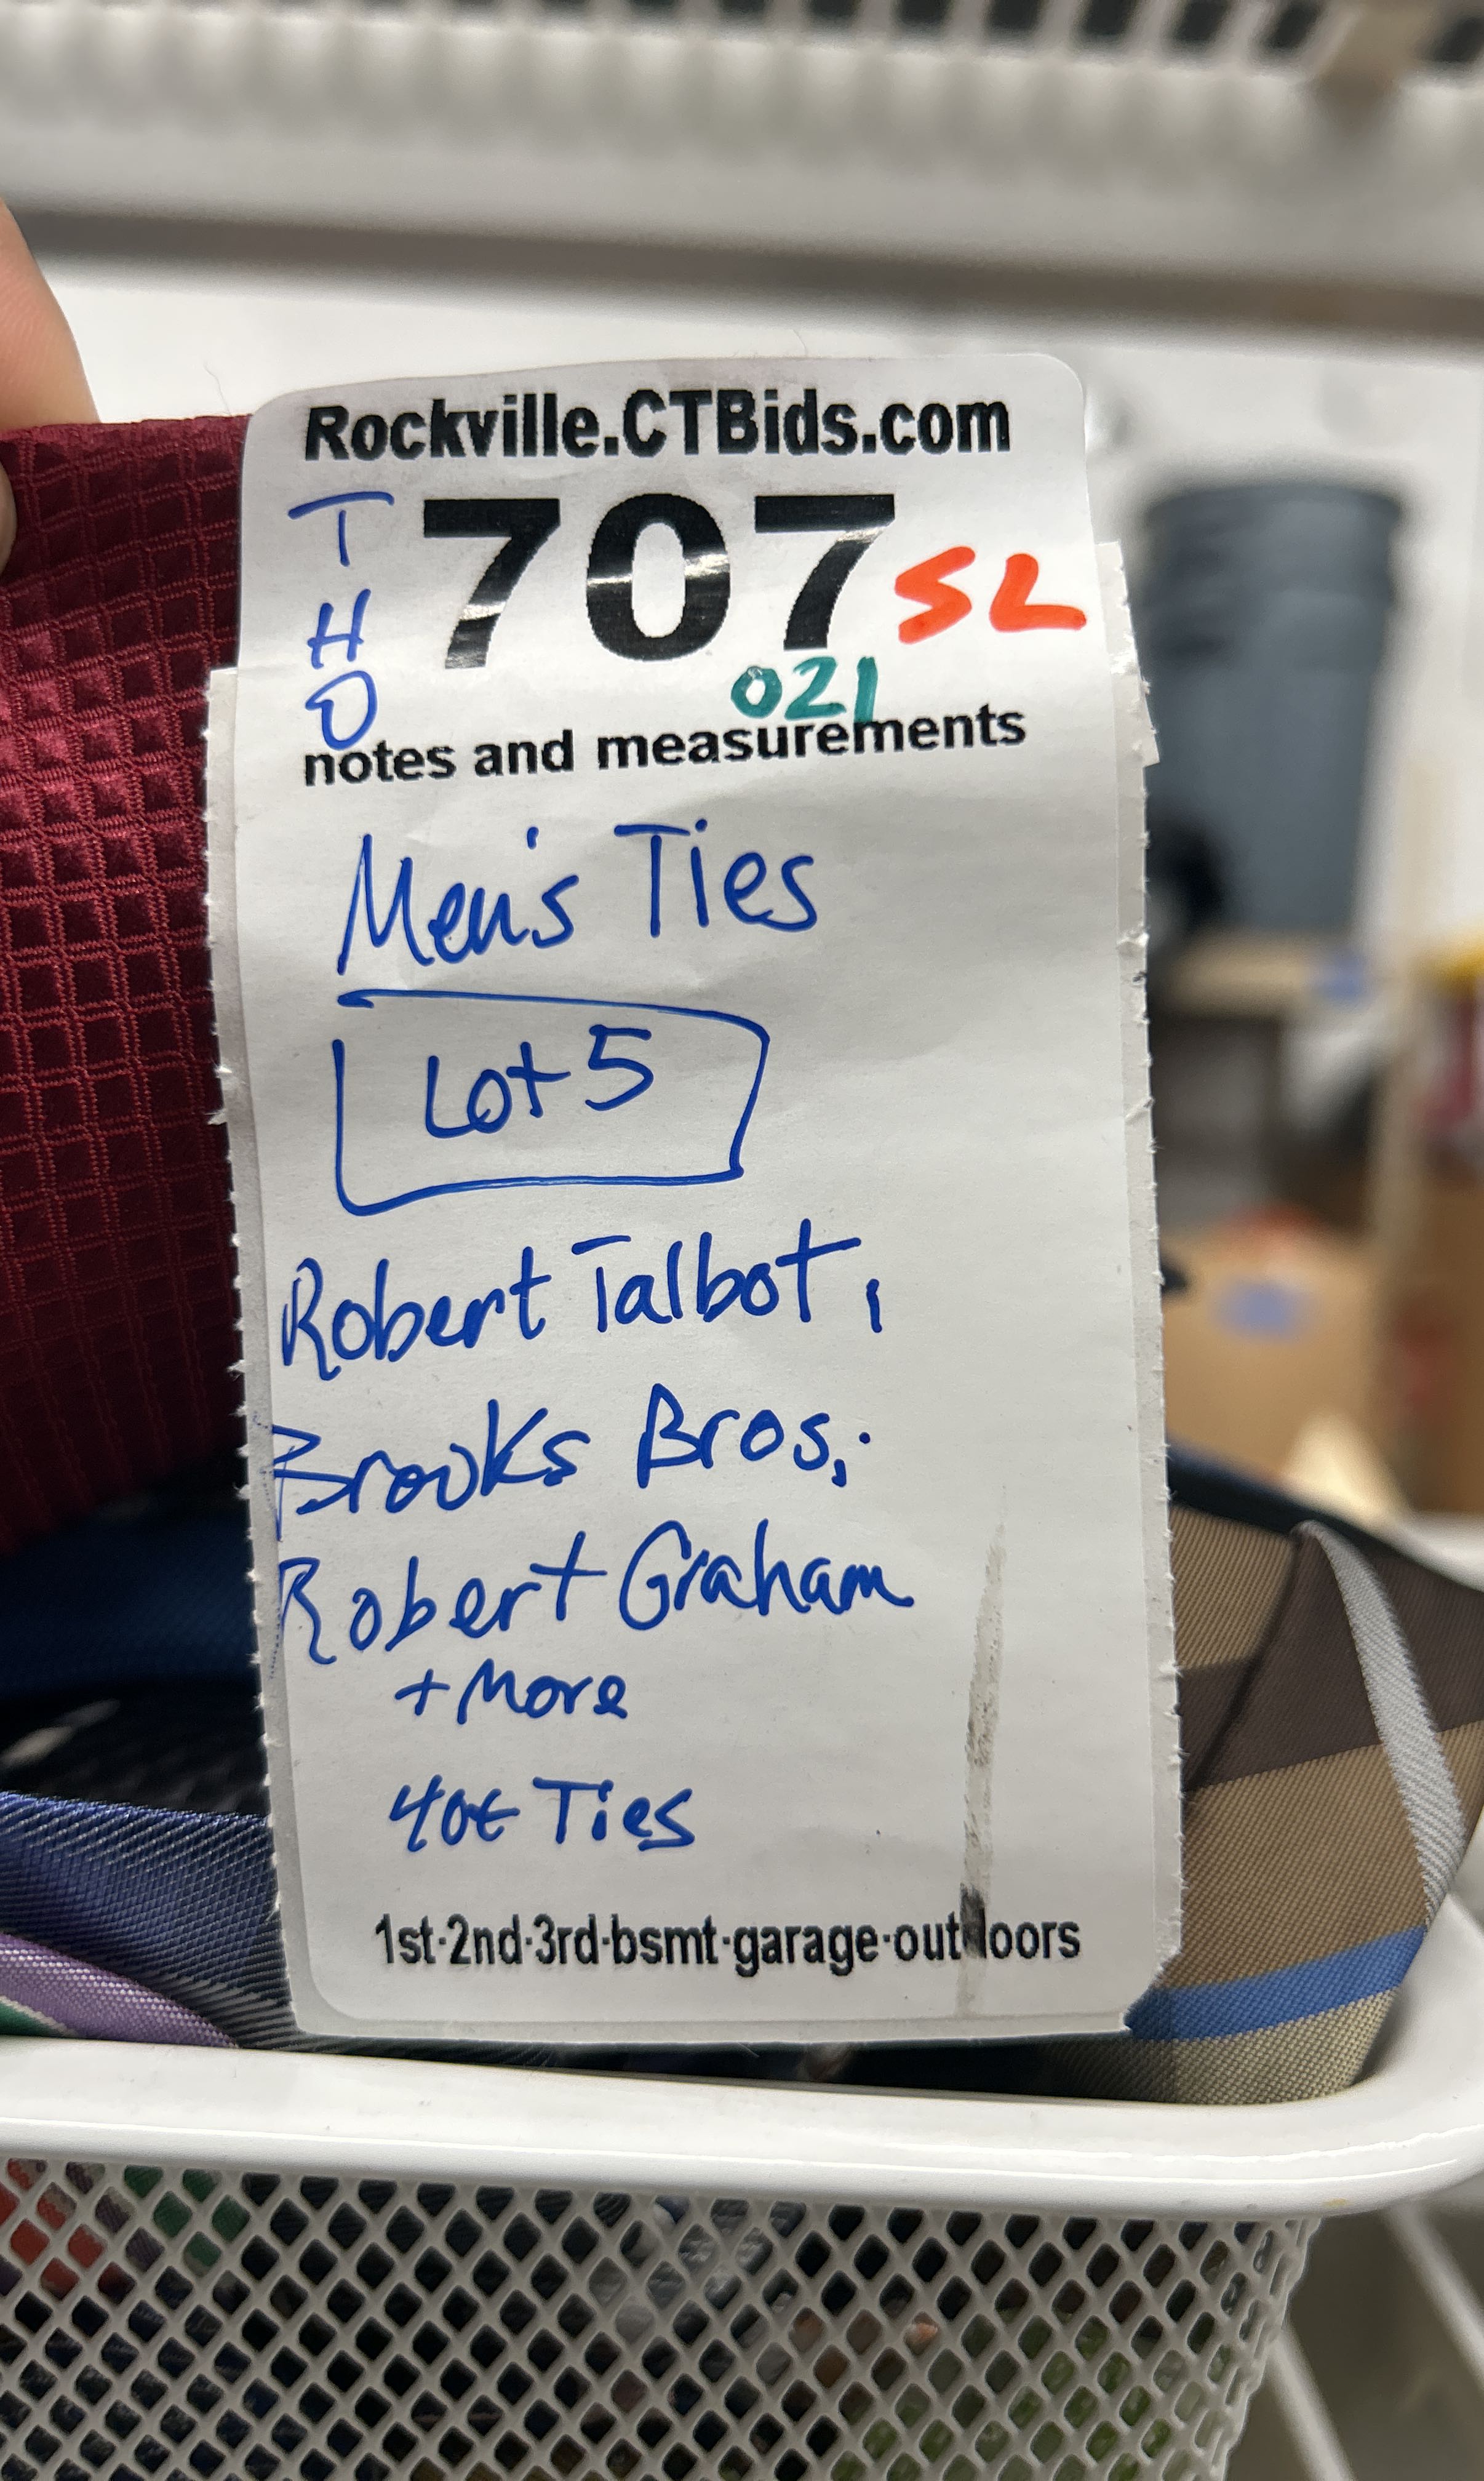 Rockville.CTBids.com
T
H
O
707 SL
021
notes and measurements
Men's Ties
Lot 5
Robert Talbot,
Brooks Bros,
Robert Graham
+ More
Ties
1st·2nd·3rd·bsmt·garage·outdoors